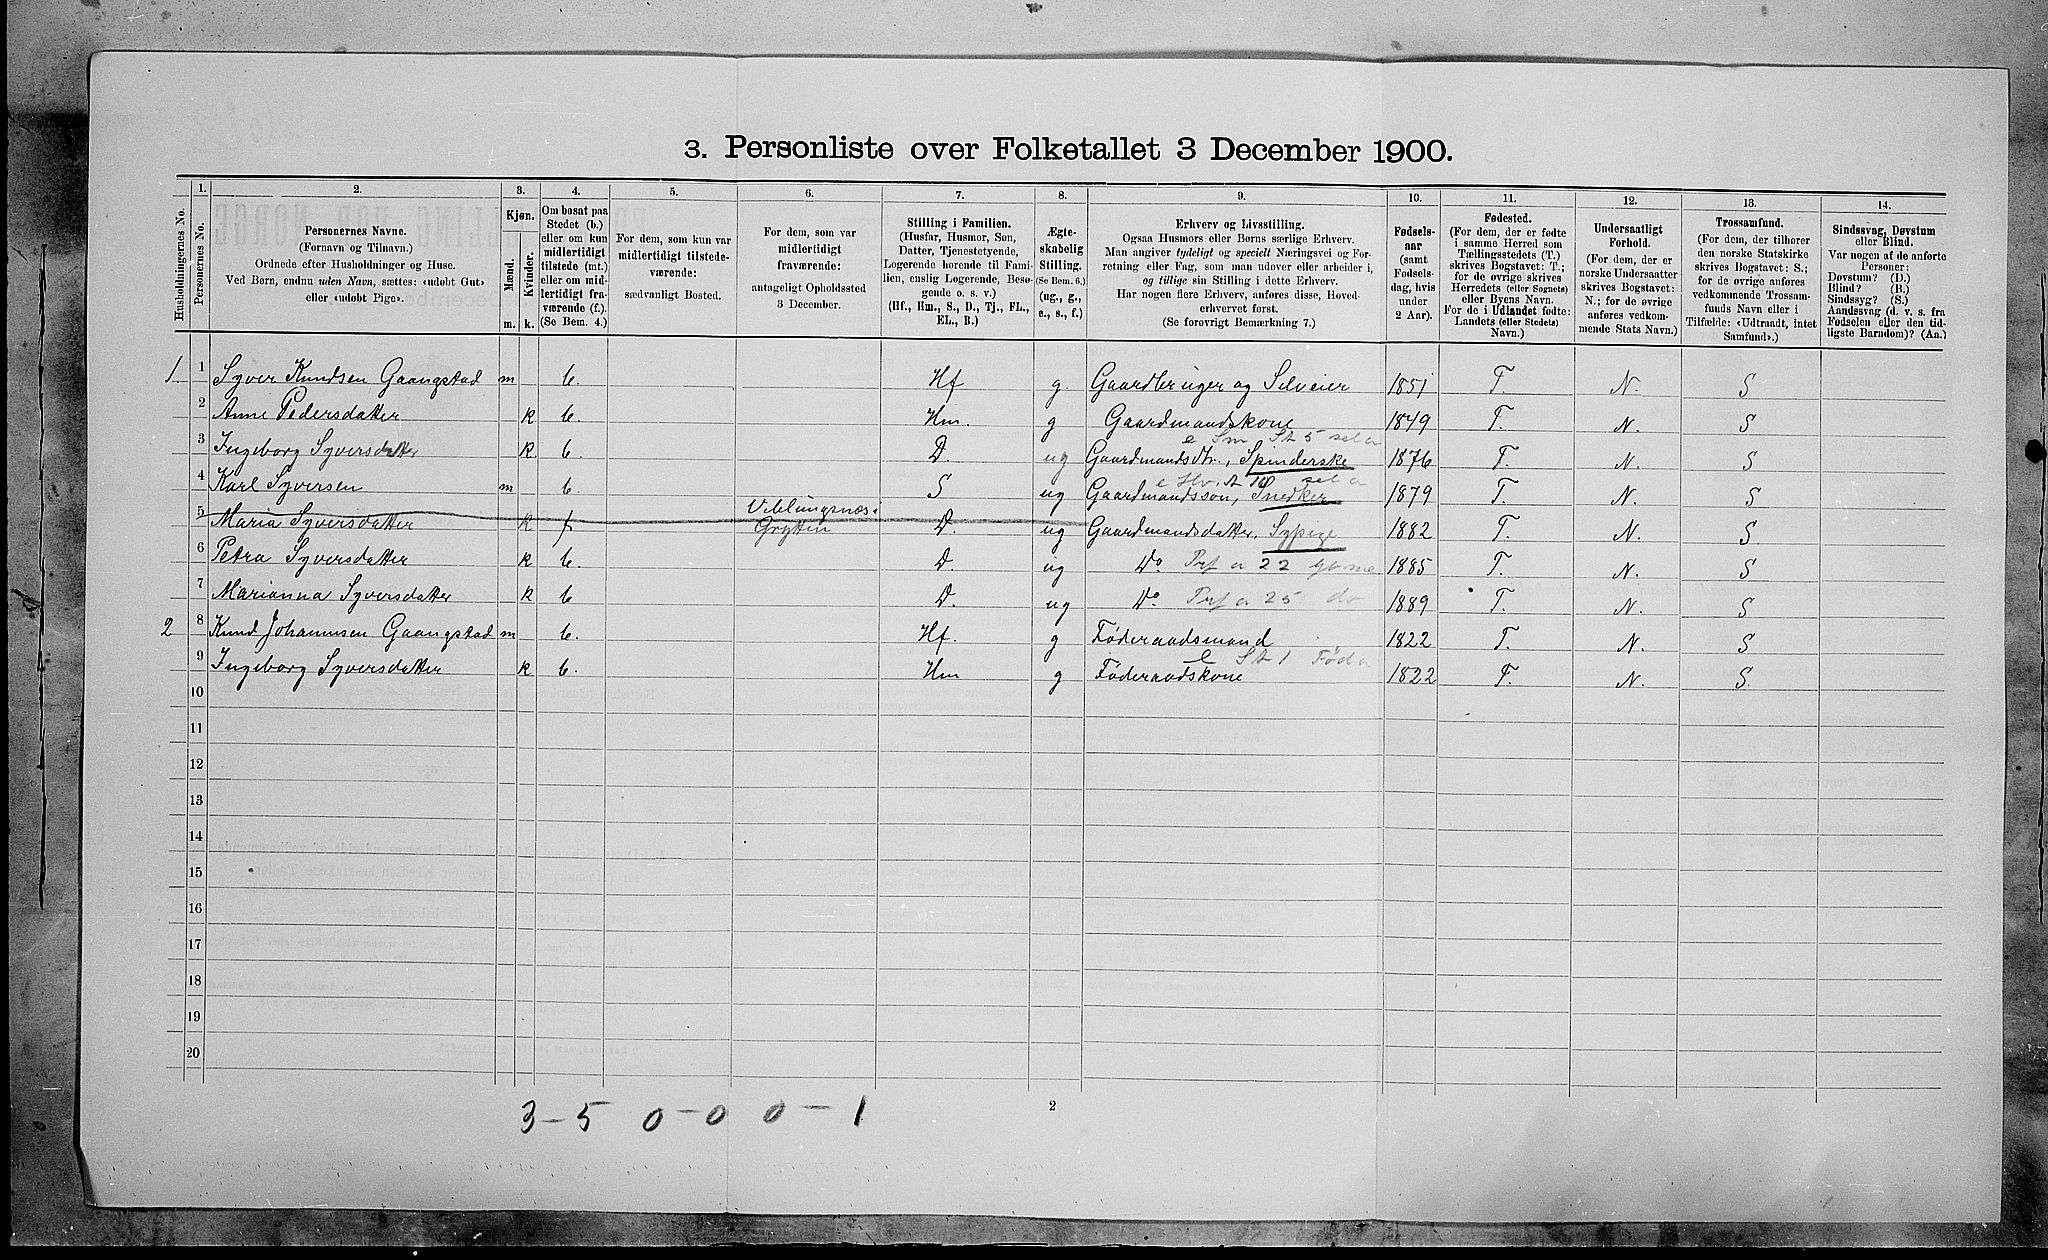 3. Personliste over Folketallet 3 December 1900.
Husholdningernes No.
1. Personernes No.
2. Personernes Navne.
(Fornavn og Tilnavn.)
Ordnede efter Husholdninger og Huse.
Ved Børn, endnu uden Navn, sættes: «udøbt Gut»
eller «udøbt Pige».
3. Kjøn.
Mænd. Kvinder.
m. k.
4. Om bosat paa
Stedet (b.)
eller om kun
midlertidigt
tilstede (mt.)
eller om mid-
lertidigt fra-
værende (f.).
(Se Bem. 4.)
5. For dem, som kun var
midlertidigt tilstede-
værende:
sædvanligt Bosted.
6. For dem, som var
midlertidigt
fraværende:
antageligt Opholdssted
3 December.
7. Stilling i Familien.
(Husfar, Husmor, Søn,
Datter, Tjenestetyende,
Logerende hørende til Fami-
lien, enslig Logerende, Besø-
gende o. s. v.)
(Hf., Hm., S., D., Tj., FL.,
EL., B.)
8. Ægte-
skabelig
Stilling.
(Se Bem. 6.)
(ug., g.,
e., s., f.)
9. Erhverv og Livsstilling.
Ogsaa Husmors eller Børns særlige Erhverv.
Man angiver tydeligt og specielt Næringsvei og For-
retning eller Fag, som man udøver eller arbeider i,
og tillige sin Stilling i dette Erhverv.
Har nogen flere Erhverv, anføres disse, Hoved-
erhvervet først.
(Se forøvrigt Bemærkning 7.)
10. Fødsels-
aar
(samt
Fødsels-
dag, hvis
under
2 Aar).
11. Fødested.
(For dem, der er fødte
i samme Herred som
Tællingsstedets (T.)
skrives Bogstavet: T.;
for de øvrige skrives
Herredets (eller Sognets)
eller Byens Navn.
For de i Udlandet fødte:
Landets (eller Stedets)
Navn.)
12. Undersaatligt
Forhold.
(For dem, der er
norske Undersaatter
skrives Bogstavet:
N.; for de øvrige
anføres vedkom-
mende Stats Navn.)
13. Trossamfund.
(For dem, der tilhører
den norske Statskirke
skrives Bogstavet: S.;
for de øvrige anføres
vedkommende Trossam-
funds Navn eller i
Tilfælde: «Udtraadt, intet
Samfund».)
14. Sindssvag, Døvstum
eller Blind.
Var nogen af de anførte
Personer:
Døvstum? (D.)
Blind? (B.)
Sindssyg? (S.)
Aandssvag (d. v. s. fra
Fødselen eller den tid-
ligste Barndom)? (Aa.)
1. 1 Syver Knudsen Gaangstad m b. Hf g. Gaardbruger og Selveier 1851 T. N. S
2 Anne Pedersdatter k b. Hm. g Gaardmandskone 1849 T. N. S
e Sm St 5 sel a
3 Ingeborg Syversdatter k b. D. ug Gaardmandsdtr., Spinderske 1876 T. N. S
e Hv. A 10 sel a
4 Karl Syversen m b. S ug Gaardmandssøn, Snedker 1879 T. N. S
Veblungsnæs
5 Maria Syversdatter k f Grytten D. ug Gaardmandsdatter, Sypige 1882 T. N. S
6 Petra Syversdatter k b. D. ug Do Prf a 22 gbme 1885 T. N. S
7 Marianna Syversdatter k b D. ug Do Prf a 25 do 1889 T. N. S
2 8 Knud Johannsen Gaangstad m b. Hf. g Føderaadsmand 1822 T. N. S
e St 1 Fød a
9 Ingeborg Syversdatter k b. Hm g Føderaadskone 1822 T. N. S.
10
11
12
13
14
15
16
17
18
19
20
3 – 5 0 – 0 0 – 1
2